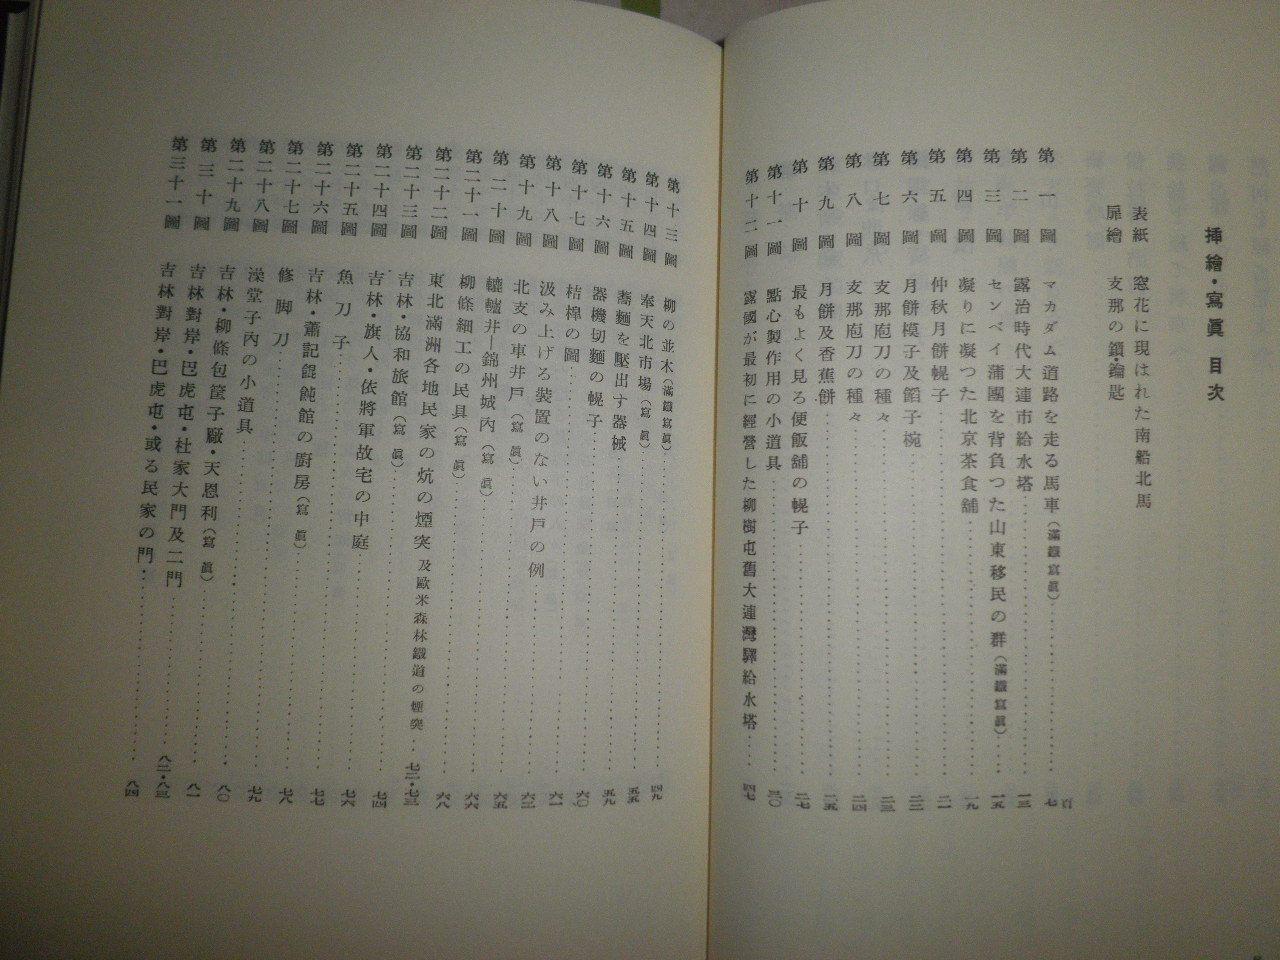 挿繪・寫眞 目次
表紙 窓花に現はれた南船北馬
扉繪 支那の鎖・鑰匙
百
第一圖 マカダム道路を走る馬車(滿鐵寫眞)……七
第二圖 露治時代大連市給水塔……一三
第三圖 センベイ蒲團を背負つた山東移民の群(滿鐵寫眞)……一五
第四圖 凝りに凝つた北京茶食舖……一九
第五圖 仲秋月餅幌子……二一
第六圖 月餅模子及餡子椀……二二
第七圖 支那庖刀の種々……二三
第八圖 支那庖刀の種々……二四
第九圖 月餅及香蕉餅……二五
第十圖 最もよく見る便飯舖の幌子……二七
第十一圖 點心製作用の小道具……三〇
第十二圖 露國が最初に經營した柳樹屯舊大連灣驛給水塔……四七
第十三圖 柳の並木(滿鐵寫眞)……四九
第十四圖 奉天北市場(寫眞)……五五
第十五圖 蕎麵を壓出す器械……五五
第十六圖 器機切麵の幌子……五九
第十七圖 桔槹の圖……六〇
第十八圖 汲み上げる裝置のない井戸の例……六一
第十九圖 北支の車井戸(寫眞)……六二
第二十圖 轆轤井—錦州城內(寫眞)……六五
第二十一圖 柳條細工の民具(寫眞)……六六
第二十二圖 東北滿洲各地民家の炕の煙突及歐米森林鐵道の煙突……六八
第二十三圖 吉林・協和旅館(寫眞)……七二・七三
第二十四圖 吉林・旗人・依將軍故宅の中庭……七四
第二十五圖 魚刀子……七六
第二十六圖 吉林・蕭記餛飩館の厨房(寫眞)……七七
第二十七圖 修脚刀……七八
第二十八圖 澡堂子內の小道具……七九
第二十九圖 吉林・柳條包筐子廠・天恩利(寫眞)……八〇
第三十圖 吉林對岸・巴虎屯・杜家大門及二門……八一
第三十一圖 吉林對岸・巴虎屯・或る民家の門……八二・八三
八四